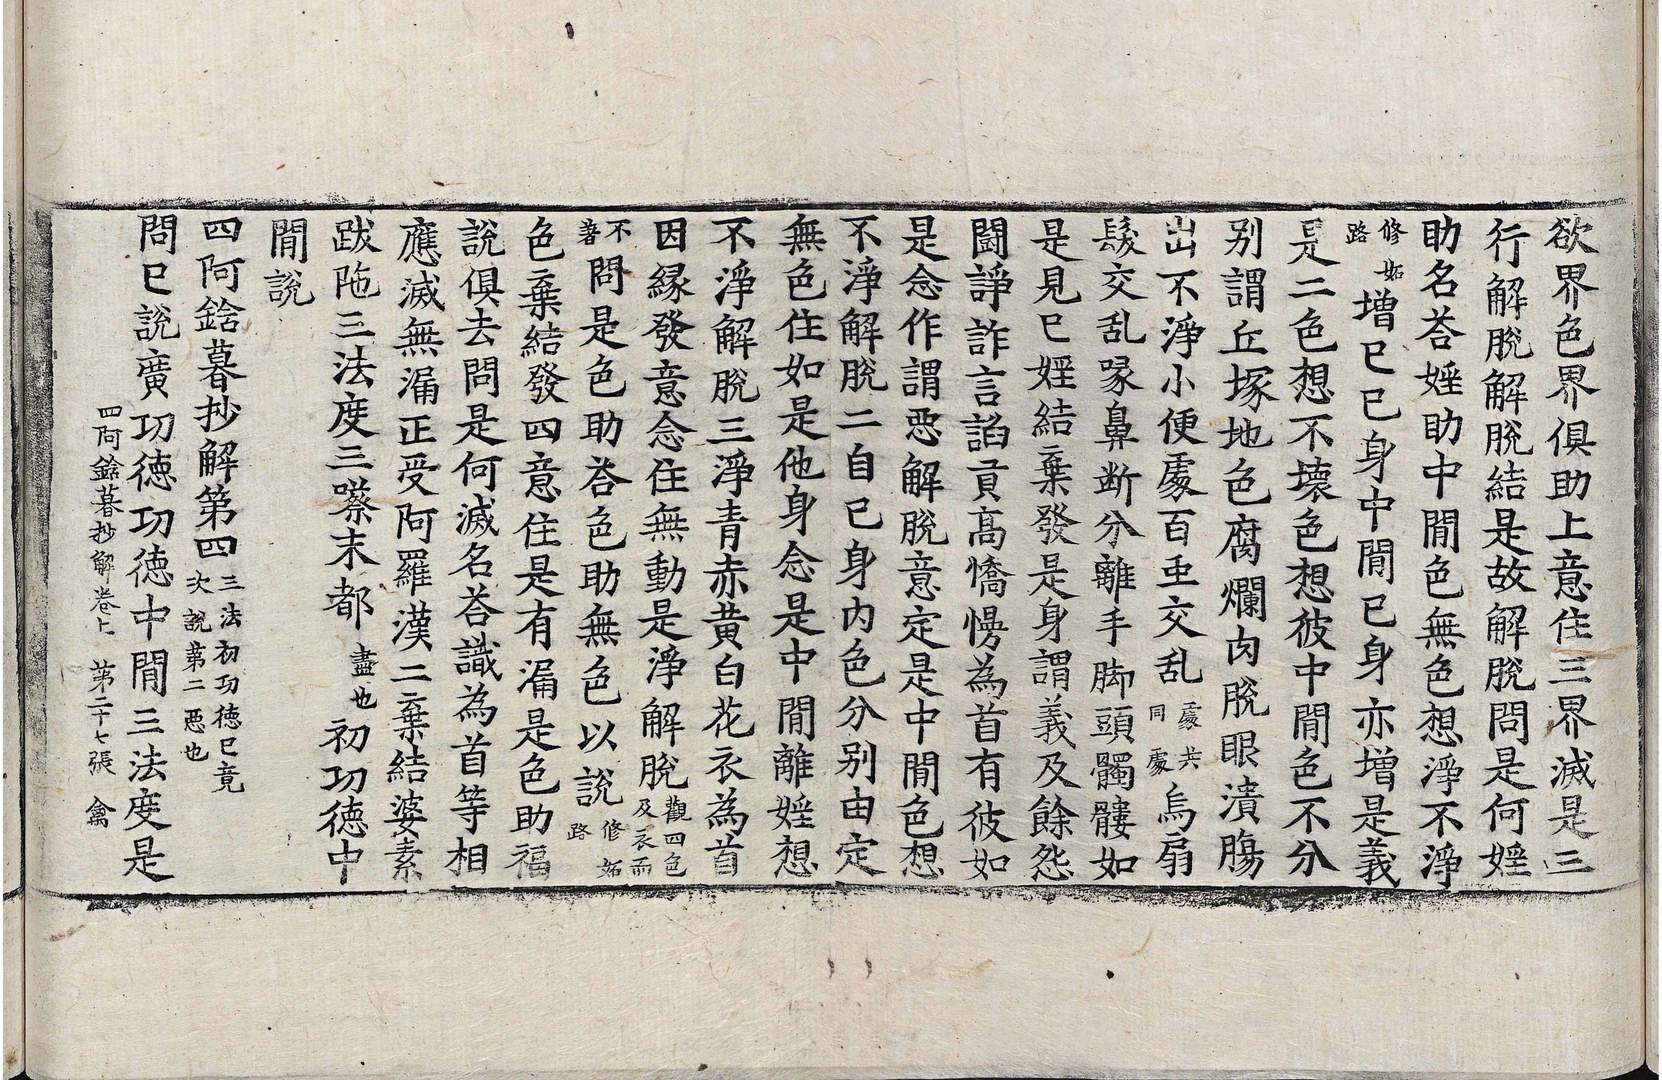 欲界色界俱助上意住三界滅是三
行解脫解脫結是故解脫問是何婬
助名荅婬助中閒色無色想淨不淨
修妬路增已已身中閒已身亦增是義
是二色想不壞色想彼中閒色不分
別謂丘塚地色腐爛肉脫眼潰腸
出不淨小便處百虫交乱處共同處烏扇
髮交乱喙鼻断分離手脚頭髑髏如
是見已婬結棄發是身謂義及餘怨
鬪諍詐言諂貢高憍慢為首有彼如
是念作謂惡解脫意定是中閒色想
不淨解脫二自已身內色分別由定
無色住如是他身念是中閒離婬想
不淨解脫三淨青赤黃白花衣為首
因緣發意念住無動是淨解脫觀四色及衣而
不著問是色助荅色助無色以說修妬路
色棄結發四意住是有漏是色助福
說俱去問是何滅名荅識為首等相
應滅無漏正受阿羅漢二棄結婆素
跋陁三法度三㗫末都盡也初功德中
閒說
四阿鋡暮抄解第四三法初功德已竟次說第二惡也
問已說廣功德功德中閒三法度是
四阿鋡暮抄解卷上　第二十七張　禽